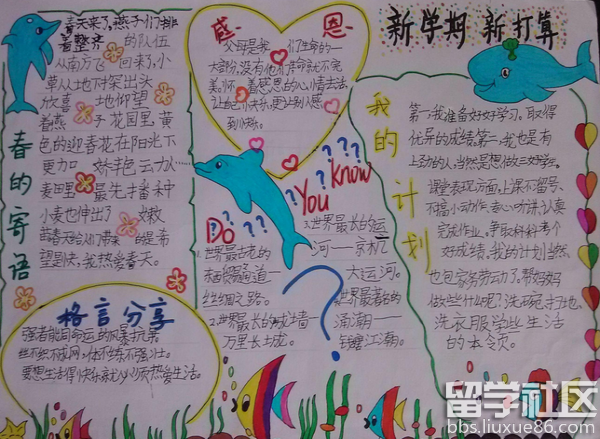 春的寄语
春天来了,燕子们排
着整齐 的队伍
从南方飞 回来了,小
草从土地下探出头
欣喜 地仰望
着燕 子花园里黄
色的迎春花在阳光下
更加 娇艳
麦田里 最先播种
小麦也伸出了 嫩
苗春天给人们带来 的是希
望是快,我热爱春天。
格言分享
强者能同命运的风暴抗争
丝不织不成网,体不炼不强壮。
要想生活得快乐就必须热爱生活。
感 恩
父母是我 们生命的一
大部分,没有他们生命就不完
美。怀 着感恩的心情去
让自己快乐,更让别人感
到快乐。
Do You Know
???
1.世界最古老的
通道一
丝绸之路。
2.世界最长的城墙一
万里长城。
3.世界最长的运
河——京杭
大运河。
世界最著名的
涌潮——
钱塘江潮。
新学期 新打算
我的计划
第一,我准备好好学习,取得
优异的成绩。第二,我也是有
上劲的人,当然是想做三好学生。
课堂表现方面,上课不留号、
不搞小动作、专心听讲、认真
完成作业。争取科科考个
好成绩。我的计划当然
也包家务劳动了,帮妈妈
做些什么呢?洗碗、扫地、
洗衣服学些生活
的本领。
留学社区
bbs.liuxue86.com